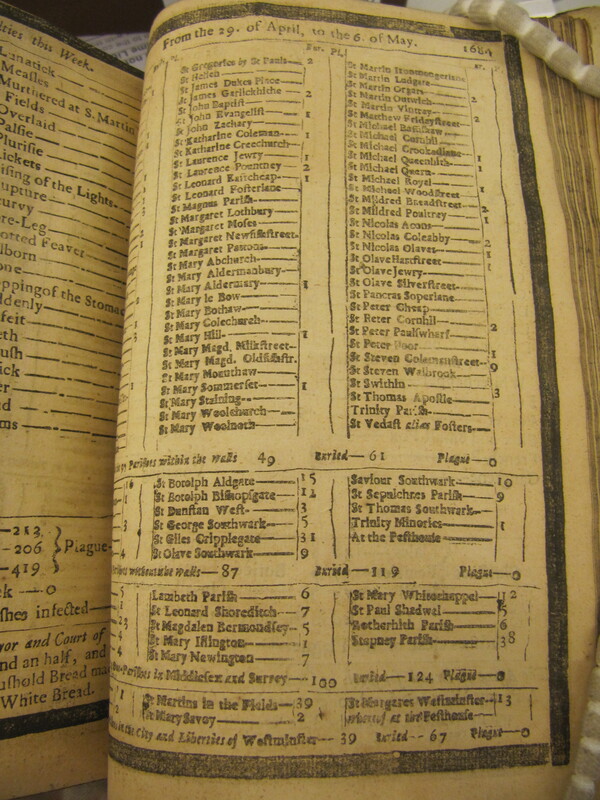 ities this Week.
Lunatick
Measles
Murthered at S. Martin
Fields
Overlaid
Palsie
Plurisie
ickets
ising of the Lights
upture
curvy
re-Leg
otted Feaver
lborn
one
opping of the Stomac
ddenly
feit
eth
ush
ick
er
d
ms
213
206 } Plague
419
ck — 0
shes infected
yor and Court of
nd an half, and
ushold Bread ma
White Bread.
From the 29. of April, to the 6. of May. 1684
Bur. Pl.
St Gregories by St Pauls 2
St Hellen
St James Dukes Place
St James Garlickhithe 2
St John Baptist
St John Evangelist 1
St John Zachary
St Katharine Coleman 1
St Katharine Creechurch
St Laurence Jewry
St Laurence Pountney 2
St Leonard Eastcheap 1
St Leonard Fosterlane
St Magnus Parish
St Margaret Lothbury
St Margaret Moses
St Margaret Newfishstreet
St Margaret Pattons
St Mary Abchurch
St Mary Aldermanbury
St Mary Aldermary 1
St Mary le Bow
St Mary Bothaw
St Mary Colechurch
St Mary Hill 1
St Mary Magd. Milkstreet
St Mary Magd. Oldfishstr.
St Mary Mounthaw
St Mary Sommerset 1
St Mary Staining
St Mary Woolchurch
St Mary Woolnoth
St Martin Iremongerlane
St Martin Ludgate
St Martin Orgars
St Martin Outwich 2
St Martin Vintrey
St Matthew Fridaystreet
St Michael Bassishaw
St Michael Cornhil
St Michael Crookedlane
St Michael Queenhith 1
St Michael Quern
St Michael Royal
St Michael Woodstreet
St Mildred Breadstreet
St Mildred Poultrey
St Nicolas Acons
St Nicolas Coleabby
St Nicolas Olaves
St Olave Hartstreet
St Olave Jewry
St Olave Silverstreet
St Pancras Soperlane
St Peter Cheap
St Peter Cornhil
St Peter Paulswharf 2
St Peter Poor
St Steven Colemanstreet
St Steven Walbrook
St Swithin
St Thomas Apostle
Trinity Parish
St Vedast alias Fosters
Parishes within the Walls 49 Buried — 61 Plague — 0
St Botolph Aldgate 15
St Botolph Bishopsgate
St Dunstan West 3
St George Southwark 5
St Giles Cripplegate 31
St Olave Southwark 9
Saviour Southwark 10
St Sepulchres Parish 9
St Thomas Southwark
Trinity Minories 1
At the Pesthouse
without the Walls — 87 Buried — 119 Plague — 0
Lambeth Parish 6
St Leonard Shoreditch 7
St Magdalen Bermondsey 5
St Mary Islington 1
St Mary Newington 7
St Mary Whitechappel 12
St Paul Shadwel 5
Rotherhith Parish 6
Stepney Parish 38
Parishes in Middlesex and Surrey — 100 Buried — 124 Plague — 0
St Martins in the Fields — 39
St Mary Savoy 2
St Margaret Westminster 13
whereof at the Pesthouse
in the City and Liberties of Westminster — 39 Buried — 67 Plague — 0